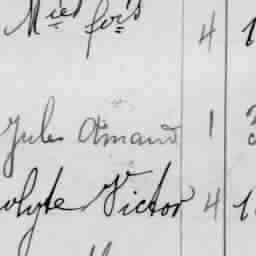 Mies fois 4 1
Jules Amand 1
olyte Victor 4 1